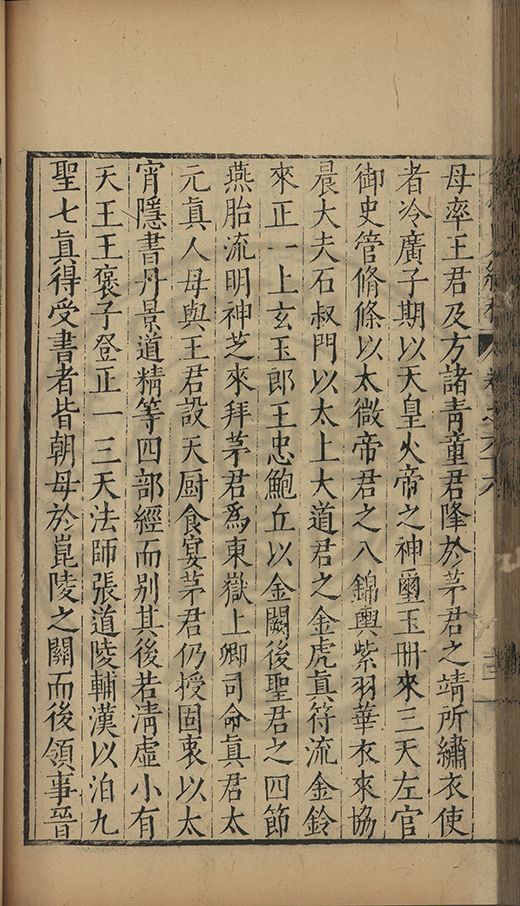 母率王君及方諸青童君降於茅君之靖所繡衣使
者冷廣子期以天皇火帝之神璽玉冊來三天左官
御史管脩條以太微帝君之八錦輿紫羽華衣來協
晨大夫石叔門以太上大道君之金虎真符流金鈴
來正一上玄玉郎王忠鮑丘以金闕後聖君之四節
燕胎流明神芝來拜茅君爲東嶽上卿司命眞君太
元眞人母與王君設天厨食宴茅君仍授固衷以太
宵隱書丹景道精等四部經而別其後若清虛小有
天王王褒子登正一三天法師張道陵輔漢以洎九
聖七眞得受書者皆朝母於崑陵之闕而後領事晉